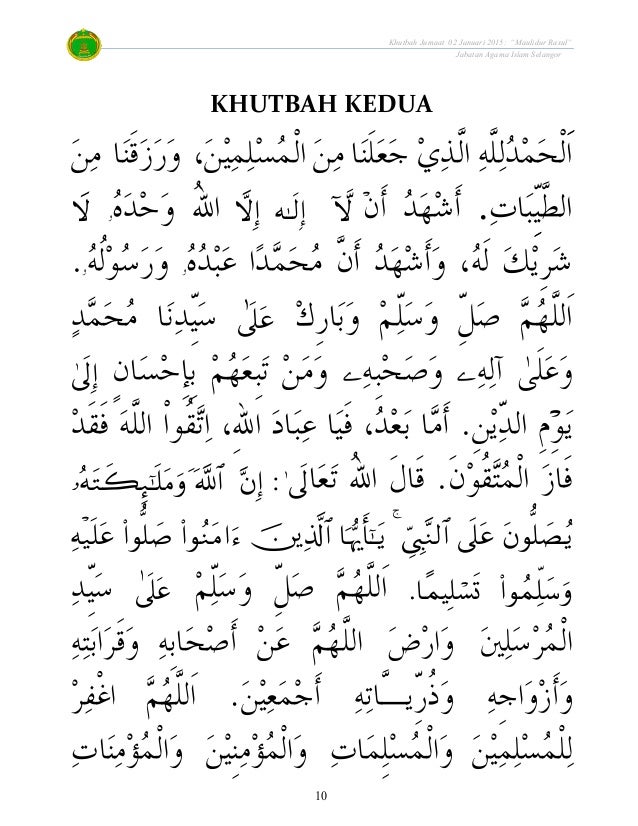 Khutbah Jumaat 02 Januari 2015: "Maulidur Rasul"
Jabatan Agama Islam Selangor
KHUTBAH KEDUA
اَلْحَمْدُلِلَّهِ الَّذِيْ جَعَلَنَا مِنَ الْمُسْلِمِيْنَ، وَرَزَقَنَا مِنَ
الطَّيِّبَاتِ. أَشْهَدُ أَنْ لَّآ إِلٰهَ إِلَّا اللهُ وَحْدَهُ، لَا
شَرِيْكَ لَهُ، وَأَشْهَدُ أَنَّ مُحَمَّدًا عَبْدُهُ وَرَسُوْلُهُ.
اَللَّهُمَّ صَلِّ وَسَلِّمْ وَبَارِكْ عَلَىٰ سَيِّدِنَا مُحَمَّدٍ
وَعَلَىٰ آلِهِ وَصَحْبِهِ وَمَنْ تَبِعَهُمْ بِإِحْسَانٍ إِلَىٰ
يَوْمِ الدِّيْنِ. أَمَّا بَعْدُ، فَيَا عِبَادَ اللهِ، اِتَّقُوْا اللَّهَ فَقَدْ
فَازَ الْمُتَّقُوْنَ. قَالَ اللهُ تَعَالَىٰ: إِنَّ ٱللَّهَ وَمَلَـٰٓئِكَتَهُۥ
يُصَلُّونَ عَلَى ٱلنَّبِىِّ ۚ يَـٰٓأَيُّهَا ٱلَّذِينَ ءَامَنُوا۟ صَلُّوا۟ عَلَيْهِ
وَسَلِّمُوا۟ تَسْلِيمًا. اَللَّهُمَّ صَلِّ وَسَلِّمْ عَلَىٰ سَيِّدِ
الْمُرْسَلِيْنَ وَارْضَ اللَّهُمَّ عَنْ أَصْحَابِهِ وَقَرَابَتِهِ
وَأَزْوَاجِهِ وَذُرِّيَّـاتِهِ أَجْمَعِيْنَ. اَللَّهُمَّ اغْفِرْ
لِلْمُسْلِمِيْنَ وَالْمُسْلِمَاتِ وَالْمُؤْمِنِيْنَ وَالْمُؤْمِنَاتِ
10